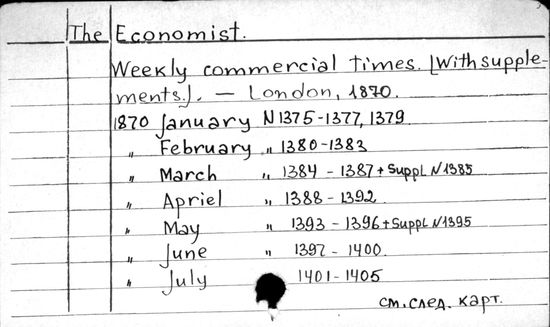 The Economist.
Weekly commercial times. [With supple-
ments.]. — London, 1870.
1870 January N 1375-1377, 1379
„ February „ 1380-1383
„ March „ 1384 - 1387 + Suppl N 1385
„ Apriel „ 1388 - 1392
„ May „ 1393 - 1396 + Suppl N 1395
„ June „ 1397 - 1400
„ July 1401 - 1405
см. след. карт.